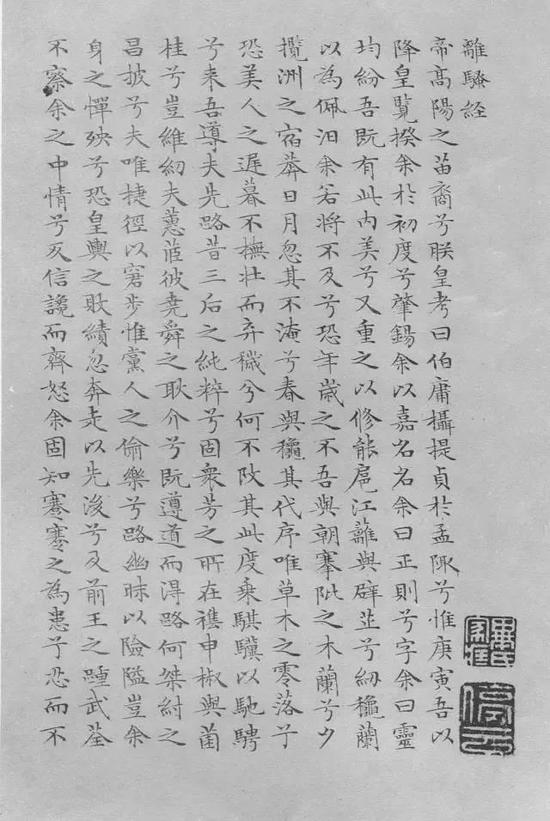 離騷經
帝高陽之苗裔兮朕皇考曰伯庸攝提貞於孟陬兮惟庚寅吾以
降皇覽揆余於初度兮肇錫余以嘉名名余曰正則兮字余曰靈
均紛吾既有此内美兮又重之以修能扈江蘺與辟芷兮紉穐蘭
以為佩汩余若將不及兮恐年歲之不吾與朝搴阰之木蘭兮夕
攬洲之宿莽日月忽其不淹兮春與穐其代序唯草木之零落兮
恐美人之遲暮不撫壯而弃穢兮何不改其此度乘騏驥以馳騁
兮来吾導夫先路昔三后之純粹兮固衆芳之所在襍申椒與菌
桂兮豈維紉夫蕙茝彼堯舜之耿介兮既遵道而得路何桀紂之
昌披兮夫唯捷徑以窘步惟黨人之偷樂兮路幽昧以險隘豈余
身之憚殃兮恐皇輿之敗績忽奔走以先後兮及前王之踵武荃
不察余之中情兮反信讒而齊怒余固知謇謇之為患兮忍而不